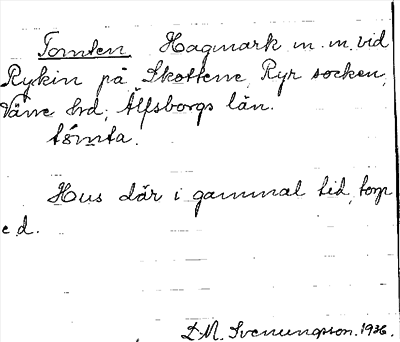 Tomten. Hagmark m. m. vid
Rykin på Skottene, Ryr socken,
Väne hrd, Älfsborgs län.
tómta.
Hus där i gammal tid, torp
e.d.
D.M. Svenungsson. 1936.